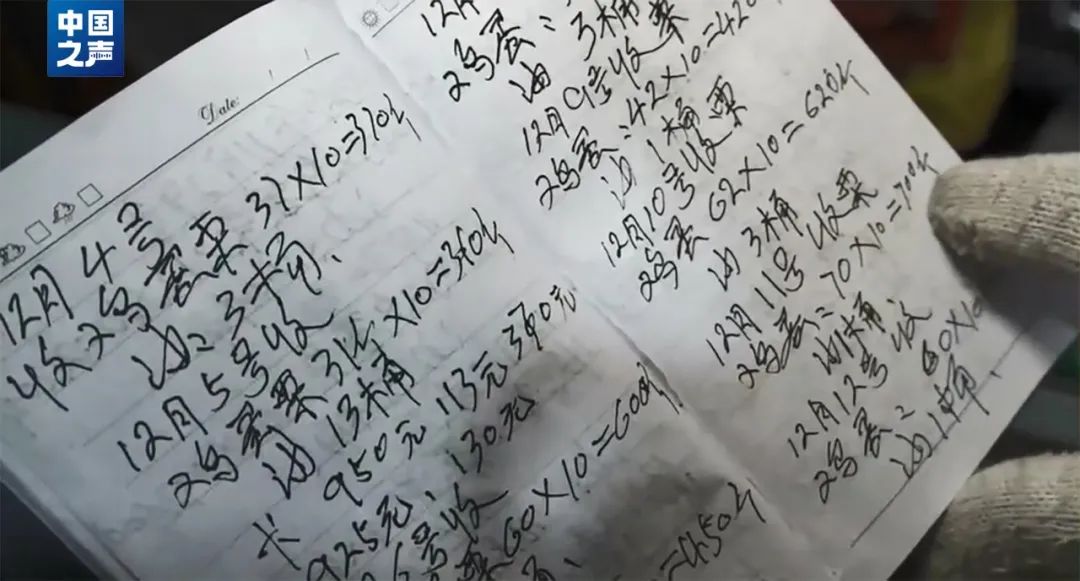 中国
之声
Date:
12月4号
收鸡蛋票 37×10=370个
油:3桶
12月5号收
鸡蛋票 34个×10=340个
油 13桶
卡 950元 113元 390元
925元、130元
6号收
60×10=600个
=450个
12月
鸡蛋: 
油 3桶
12月9号收票
鸡蛋:42×10=420
油 1桶
12月10号收票
鸡蛋 62×10=620个
油 3桶
12月11号 收票
鸡蛋:70×10=700个
油1桶
12月12号 收
鸡蛋: 60×10
油1桶